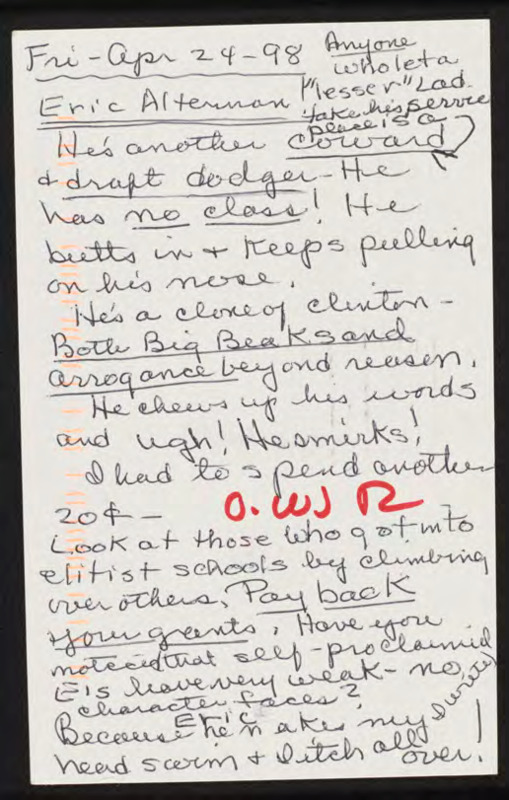 Fri-Apr 24-98
Anyone
who let a
"lesser" Lad
take his service
place is a
Eric Alterman!
He's another coward
& draft dodger - He
has no class! He
butts in & keeps pulling
on his nose.
He's a clone of Clinton -
Both Big Beaks and
arrogance beyond reason.
He chews up his words
and ugh! He smirks!
I had to spend another
20¢ -
O. WJ R
Look at those who got into
elitist schools by climbing
over others. Pay back
your grants. Have you
noticed that self-proclaimed
E's have very weak - no
character faces?
I wrote
Because Eric he makes my
head swim & I itch all
over!